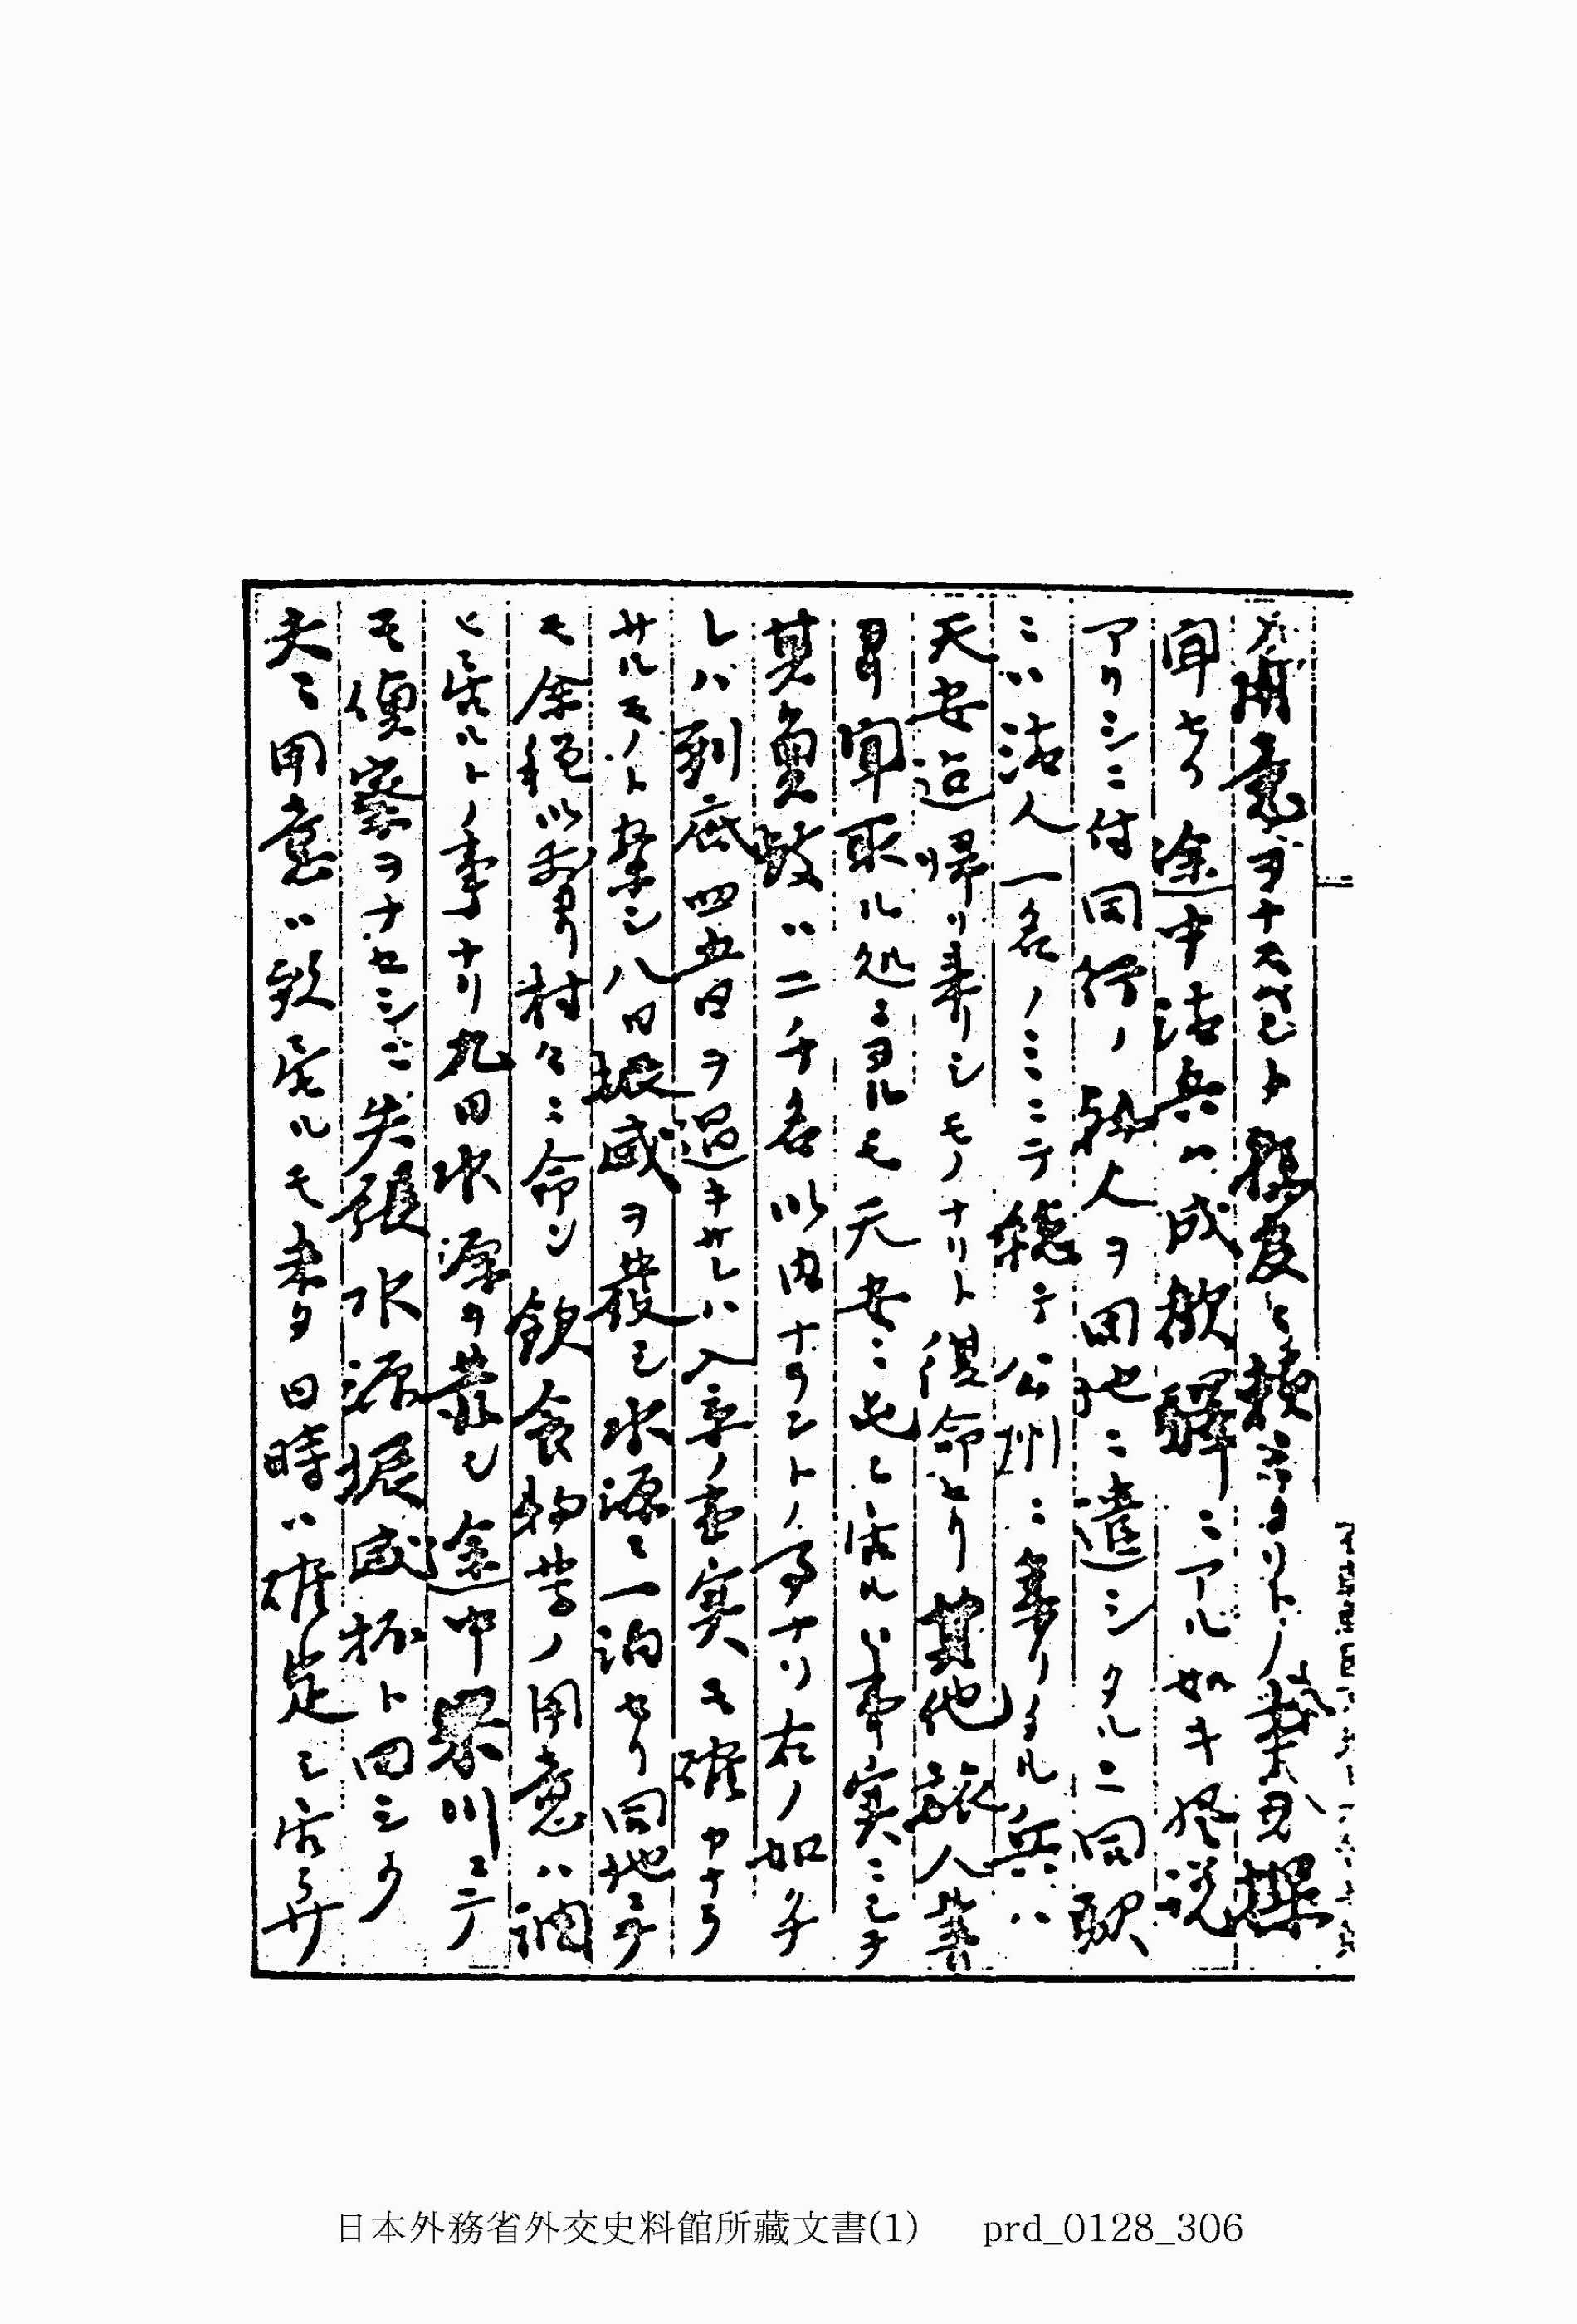 用意ヲナスベシト縣夏ニ接シタリトノ
聞セリ途中清兵ハ成歓驛ニアル如キ風説
アリシニ付同行ノ韓人ヲ同地ニ遣シタルニ同駅
ニハ清人一名ノミニテ総テ公州ニ来リタル兵ハ
天安迄帰リ来リシモノナリト復命セリ其他旅人等
ヨリ聞取ル処ニヨルモ天安ニ屯シ居ルハ事実ニシテ
其員数ハ二千名以内ナラントノ事ナリ右ノ如クナ
レバ到底四五日ヲ過キサレハ入京ノ事実モ確カナラ
サルモノト察シ八日振威ヲ發シ水源ニ一泊セリ同地ニテ
モ余程以前ヨリ村々ニ命シ飲食物等ノ用意ハ調
ヒ居ルトノ事ナリ九日水源ヲ發シ途中果川ニテ
モ偵察ヲナセシニ矢張水源振威抔ト同シク
夫々用意ハ致居ルモ未タ日時ハ確定シ居ラサ
日本外務省外交史料館所藏文書(1) prd_0128_306